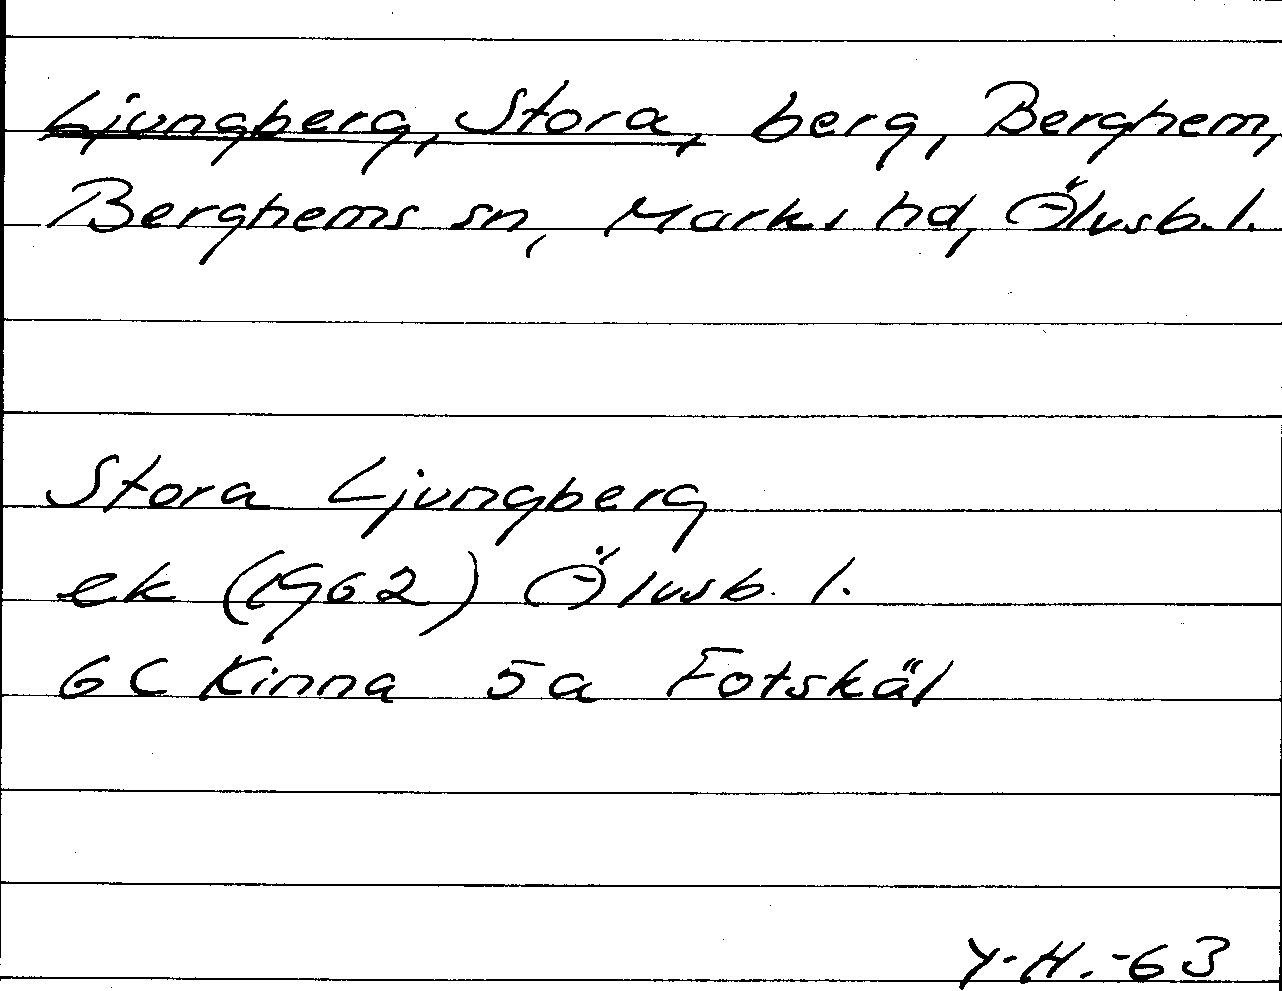 Ljungberg, Stora, berg, Berghem,
Berghems sn, Marks hd, Älvsb. l.
Stora Ljungberg
ek (1962) Älvsb. l.
6C Kinna 5a Fotskäl
Y-H.-63